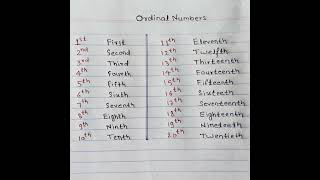 Ordinal Numbers
1st First
2nd Second
3rd Third
4th Fourth
5th Fifth
6th Sixth
7th Seventh
8th Eighth
9th Ninth
10th Tenth
11th Eleventh
12th Twelfth
13th Thirteenth
14th Fourteenth
15th Fifteenth
16th Sixteenth
17th Seventeenth
18th Eighteenth
19th Nineteenth
20th Twentieth